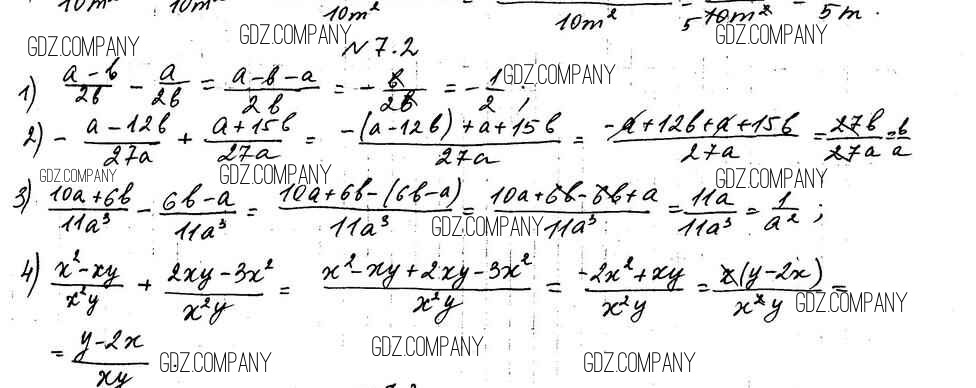 10m² 10m² 10m² 10m² 5 10m² 5m.
GDZ.COMPANY GDZ.COMPANY GDZ.COMPANY
N 7.2
1) (a-b)/2b - a/2b = (a-b-a)/2b = - b/2b = - 1/2 ; GDZ.COMPANY
2) - (a-12b)/27a + (a+15b)/27a = (-(a-12b)+a+15b)/27a = (-a+12b+a+15b)/27a = 27b/27a = b/a
GDZ.COMPANY GDZ.COMPANY GDZ.COMPANY
3) (10a+6b)/11a³ - (6b-a)/11a³ = (10a+6b-(6b-a))/11a³ = (10a+6b-6b+a)/11a³ = 11a/11a³ = 1/a² ;
GDZ.COMPANY
4) (x²-xy)/x²y + (2xy-3x²)/x²y = (x²-xy+2xy-3x²)/x²y = (-2x²+xy)/x²y = x(y-2x)/x²y =
GDZ.COMPANY
= (y-2x)/xy
GDZ.COMPANY GDZ.COMPANY GDZ.COMPANY